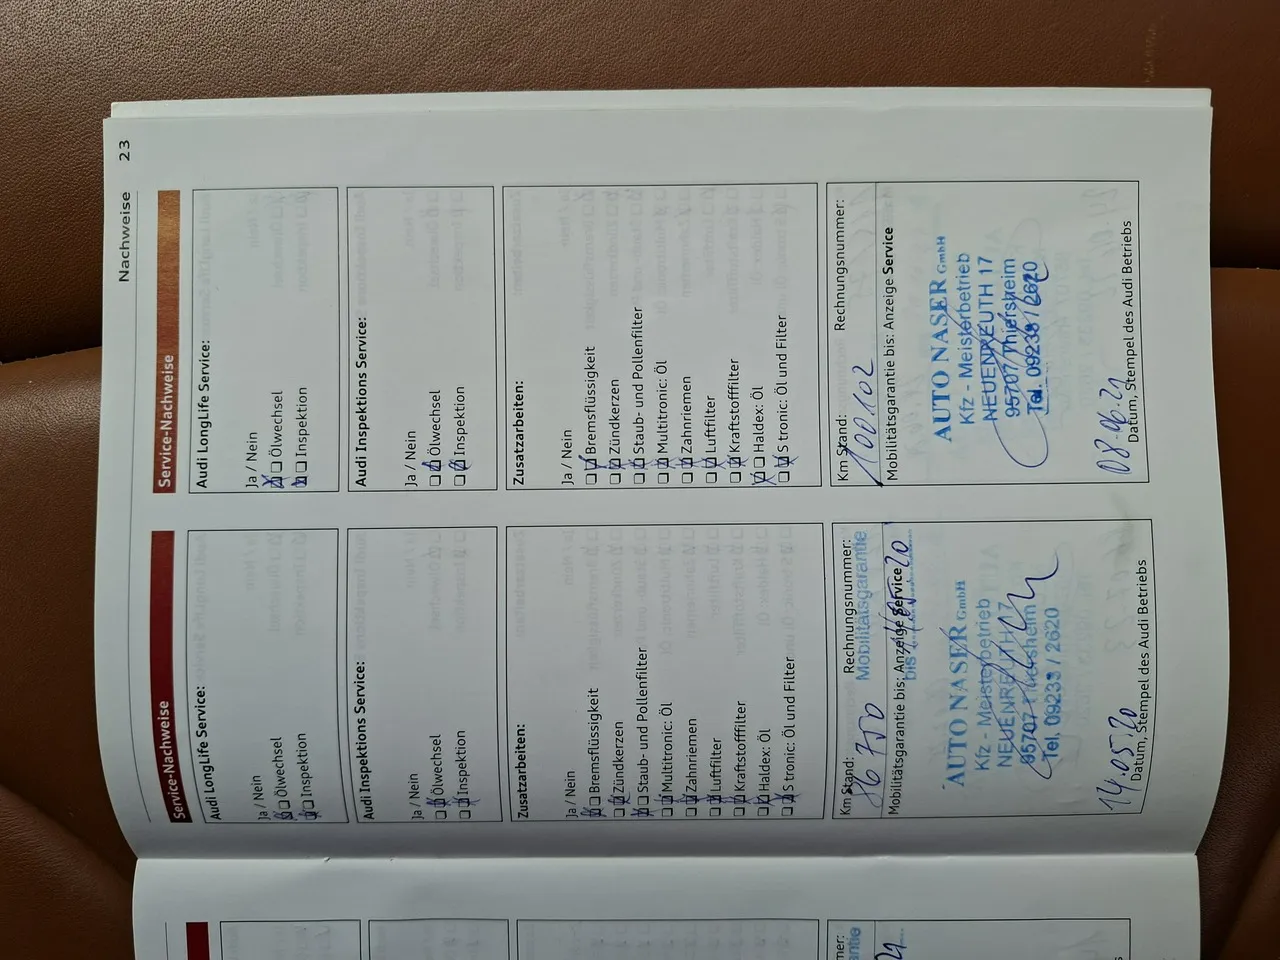 Nachweise 23
Service-Nachweise
Audi LongLife Service:
Ja / Nein
Ölwechsel
Inspektion
Audi Inspektions Service:
Ja / Nein
Ölwechsel
Inspektion
Zusatzarbeiten:
Ja / Nein
Bremsflüssigkeit
Zündkerzen
Staub- und Pollenfilter
Multitronic: Öl
Zahnriemen
Luftfilter
Kraftstoffilter
Haldex: Öl
S tronic: Öl und Filter
Km Stand: Rechnungsnummer:
86 750 Mobilitätsgarantie
Mobilitätsgarantie bis: Anzeige Service
bis
AUTO NASER GmbH
Kfz - Meisterbetrieb
NEUENREUTH 17
95707 Thiersheim
Tel. 09233 / 2620
14.05.20
Datum, Stempel des Audi Betriebs
Service-Nachweise
Audi LongLife Service:
Ja / Nein
Ölwechsel
Inspektion
Audi Inspektions Service:
Ja / Nein
Ölwechsel
Inspektion
Zusatzarbeiten:
Ja / Nein
Bremsflüssigkeit
Zündkerzen
Staub- und Pollenfilter
Multitronic: Öl
Zahnriemen
Luftfilter
Kraftstoffilter
Haldex: Öl
S tronic: Öl und Filter
Km Stand: Rechnungsnummer:
100102
Mobilitätsgarantie bis: Anzeige Service
AUTO NASER GmbH
Kfz - Meisterbetrieb
NEUENREUTH 17
95707 Thiersheim
Tel. 09233 / 2620
08.06.21
Datum, Stempel des Audi Betriebs